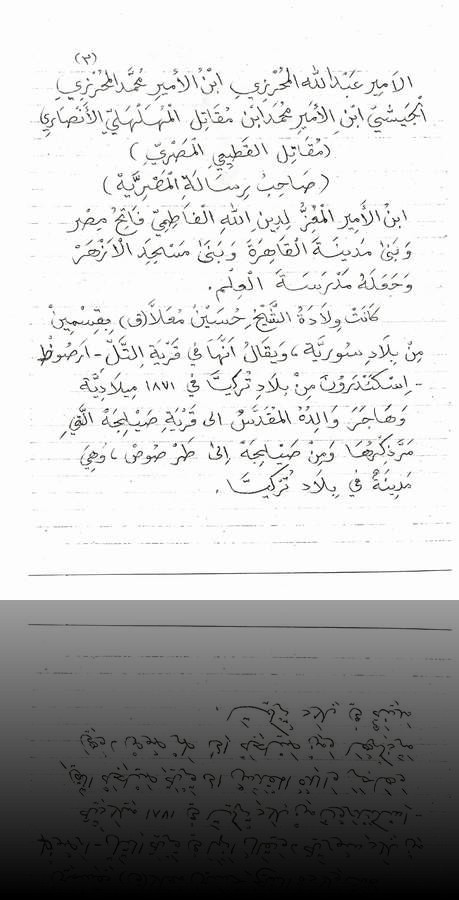 (٣)
الأَمِير عَبْدالله المُحْرْزِي ابْنُ الأمِيرِ مُحَمَّد المُحْرْزِي
الْجَيْشِيّ ابْنِ الأَمِيرِ مُحَمَّد ابْنِ مُقَاتِل الْمُهَلْهَلِيّ الأَنْصَارِي
(مُقَاتِل القَطِيعِي الْمَصْرِيّ)
(صَاحِبُ رِسَالَةِ الْمَصْرِيَّة)
ابْنُ الأَمِير الْمُعِزُّ لِدِينِ اللهِ الْفَاطِمِيّ فَاتِحُ مِصْر
وَبَنَىٰ مَدِينَةَ الْقَاهِرَةَ وَبَنَىٰ مَسْجِدَ الْأَزْهَرْ
وَجَعَلَهُ مَدْرَسَةَ الْعِلْمِ.
كَانَتْ وِلَادَةُ الشَّيْخِ حُسَيْن مُعَلَّا (ق) بِقِسْمِينْ
مِنْ بِلَادِ سُورِيَّة، وَيُقَالُ أَنَّهَا فِي قَرْيَةِ التَّلّ - ارصُوظ
- اِسْكَنْدَرُونَ مِنْ بِلَادِ تُرْكِيَّا فِي ١٨٧١ مِيلَادِيَّة
وَهَاجَرَ وَالِدُهُ الْمُقَدَّسُ الى قَرْيَةِ صَيْلِجَةْ الَّتِي
مَرَّ ذِكْرُهَا وَمِنْ صَيْلِجَةْ إِلىٰ طَرْصُوصْ، وَهِيَ
مَدِينَةٌ فِي بِلَاد تُرْكِيَّا.